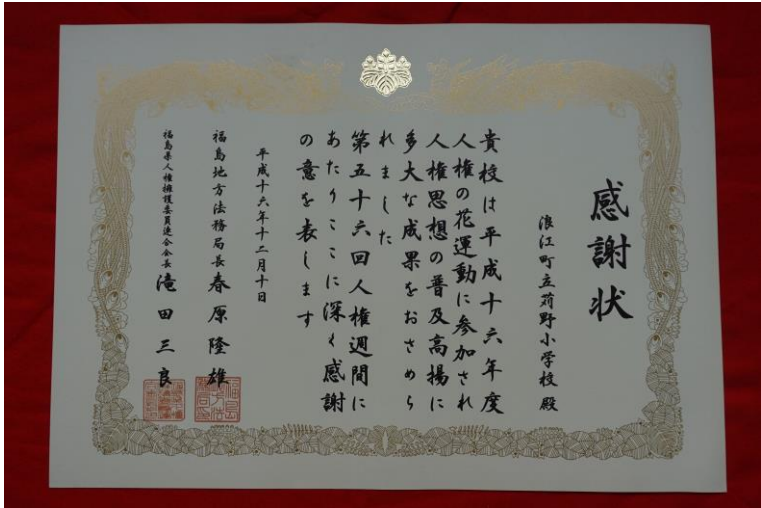 感謝状
浪江町立苅野小学校殿
貴校は平成十六年度
人権の花運動に参加され
人権思想の普及高揚に
多大な成果をおさめら
れました
第五十六回人権週間に
あたりここに深く感謝
の意を表します
平成十六年十二月十日
福島地方法務局長春原隆雄
福島県人権擁護委員連合会会長滝田三良